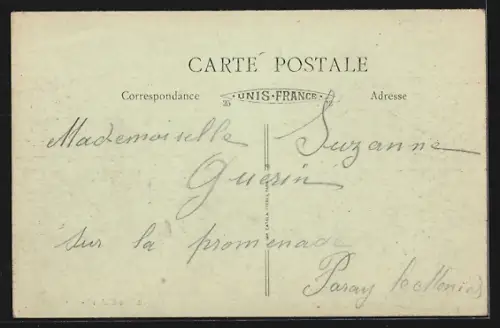 CARTE POSTALE
Correspondance
UNIS-FRANCE
Adresse
Mademoiselle Suzanne
Guerin
sur la promenade
Paray le Monial